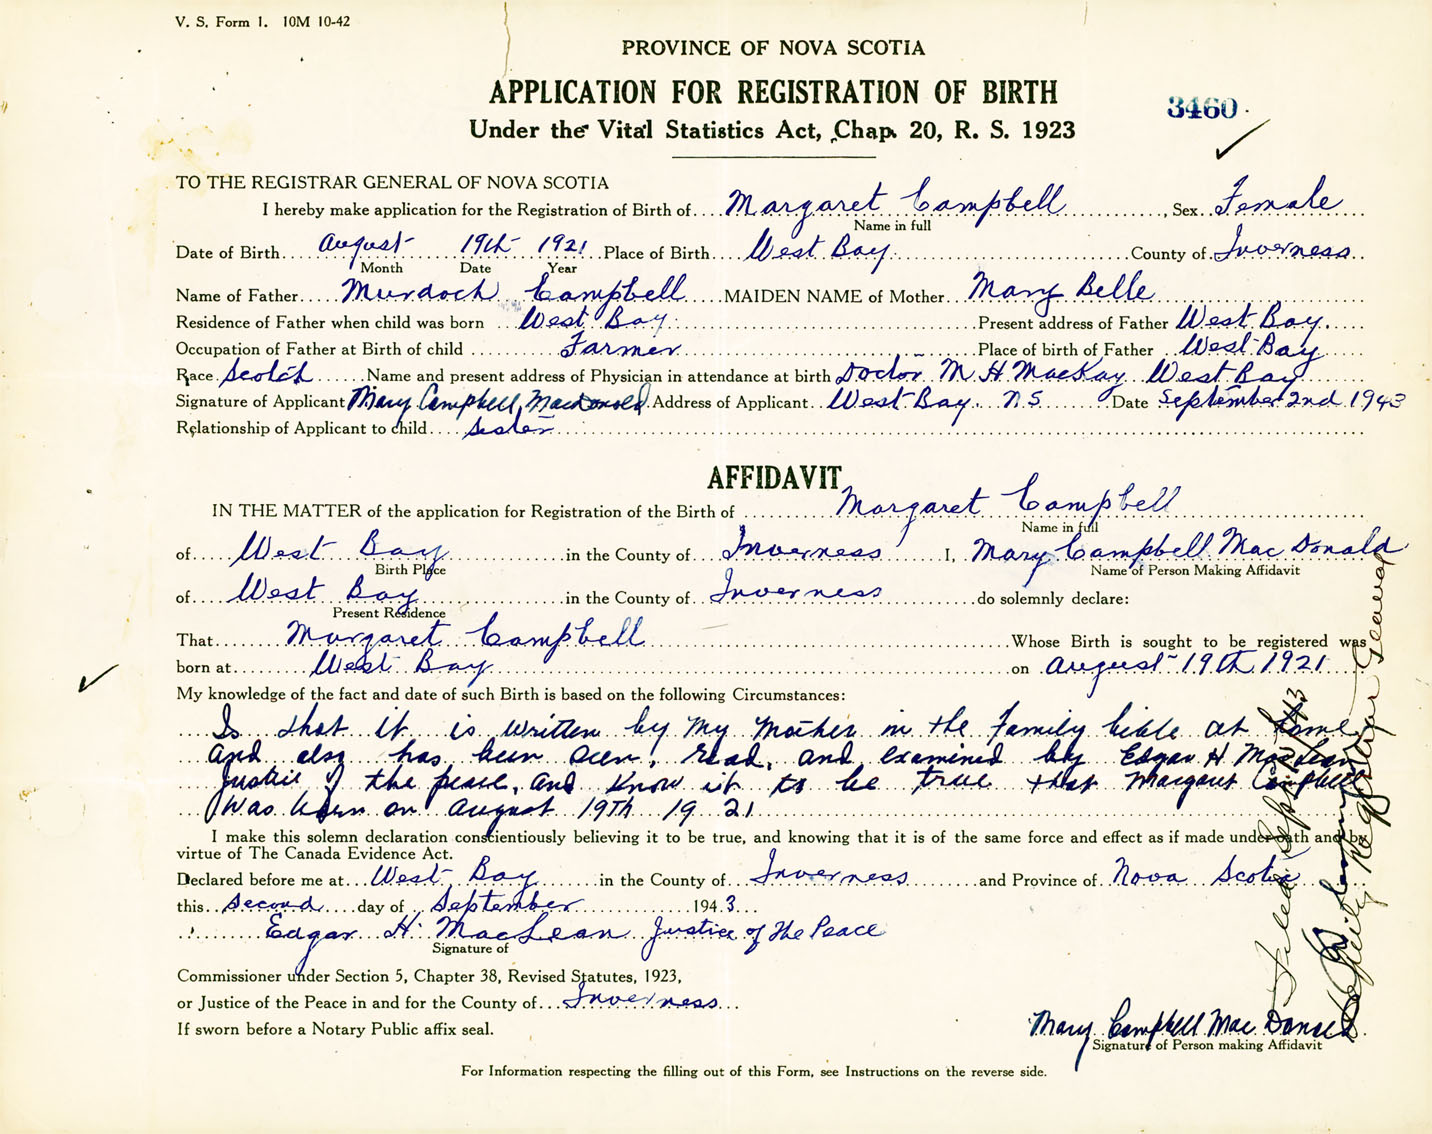 V. S. Form 1. 10M 10-42
PROVINCE OF NOVA SCOTIA
APPLICATION FOR REGISTRATION OF BIRTH
3460
Under the Vital Statistics Act, Chap. 20, R. S. 1923
TO THE REGISTRAR GENERAL OF NOVA SCOTIA
I hereby make application for the Registration of Birth of Margaret Campbell, Sex Female
Name in full
Date of Birth August 19th 1921 Place of Birth West Bay County of Inverness
Month Date Year
Name of Father Murdoch Campbell MAIDEN NAME of Mother Mary Belle
Residence of Father when child was born West Bay Present address of Father West Bay.
Occupation of Father at Birth of child Farmer Place of birth of Father West Bay
Race Scotch Name and present address of Physician in attendance at birth Doctor M H MacKay West Bay
Signature of Applicant Mary Campbell, Macdonald Address of Applicant West Bay. N S Date September 2nd 1943
Relationship of Applicant to child Sister
AFFIDAVIT
IN THE MATTER of the application for Registration of the Birth of Margaret Campbell
Name in full
of West Bay in the County of Inverness I, Mary Campbell MacDonald
Birth Place Name of Person Making Affidavit
of West Bay in the County of Inverness do solemnly declare:
Present Residence
That Margaret Campbell Whose Birth is sought to be registered was
born at West Bay on August 19th 1921
My knowledge of the fact and date of such Birth is based on the following Circumstances:
Is that it is written by my Mother in the Family bible at home
and also has been seen, read, and examined by Edgar H MacLean
Justice of the peace, and know it to be true that Margaret Campbell
Was born on August 19th 1921
I make this solemn declaration conscientiously believing it to be true, and knowing that it is of the same force and effect as if made under oath and by
virtue of The Canada Evidence Act.
Declared before me at West Bay in the County of Inverness and Province of Nova Scotia
this second day of September 1943
Edgar H. MacLean Justice of The Peace
Signature of
Commissioner under Section 5, Chapter 38, Revised Statutes, 1923,
or Justice of the Peace in and for the County of Inverness
If sworn before a Notary Public affix seal.
Mary Campbell MacDonald
Signature of Person making Affidavit
For Information respecting the filling out of this Form, see Instructions on the reverse side.
Filed Sept